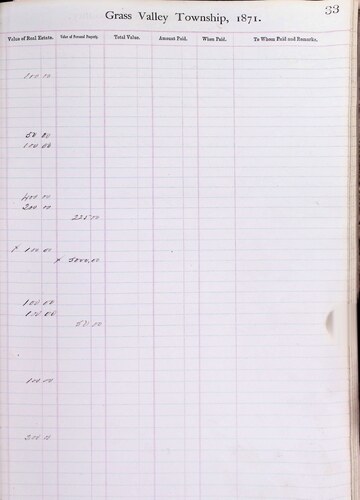 33
Grass Valley Township, 1871.
Value of Real Estate. Value of Personal Property. Total Value. Amount Paid. When Paid. To Whom Paid and Remarks.
100 00
50 00
100 00
400 00
200 00
225 00
x 100 00
x 5000,00
100 00
100 00
50 00
100 00
200 00